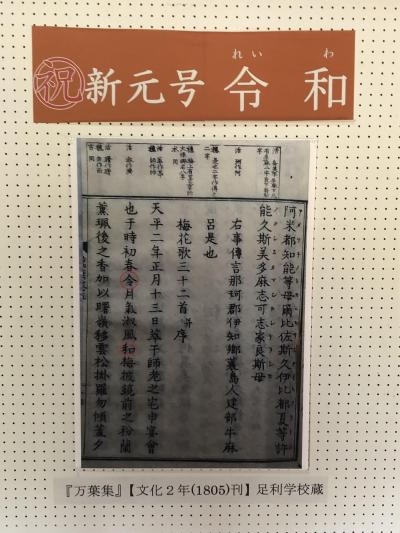 祝 新元号 令和
れいわ
阿米都知能等母爾比佐斯久伊比都夏等許
能久斯美多麻志可志家良斯母
右事傳言那珂郡伊知郷蓑島人建部牛麻
呂是也
梅花歌三十二首 并序
天平二年正月十三日萃于師老之宅申宴會
也于時初春令月氣淑風和梅披鏡前之粉蘭
薫珮後之香加以曙嶺移雲松掛羅而傾蓋夕
『万葉集』【文化2年(1805)刊】足利学校蔵